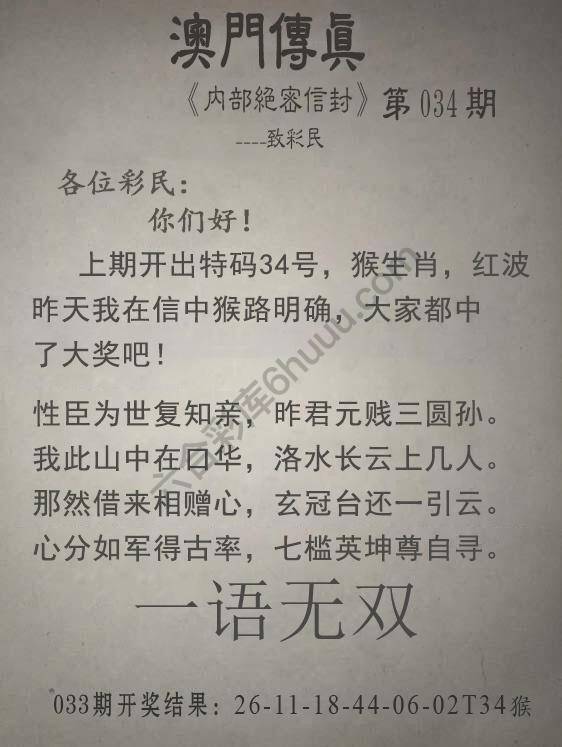 澳門傳眞
《内部絕密信封》第034期
----致彩民
各位彩民：
你们好！
上期开出特码34号，猴生肖，红波
昨天我在信中猴路明确，大家都中
了大奖吧！
性臣为世复知亲，昨君元贱三圆孙。
我此山中在口华，洛水长云上几人。
那然借来相赠心，玄冠台还一引云。
心分如军得古率，七槛英坤尊自寻。
一语无双
033期开奖结果：26-11-18-44-06-02T34猴
六合彩库6huuu.com